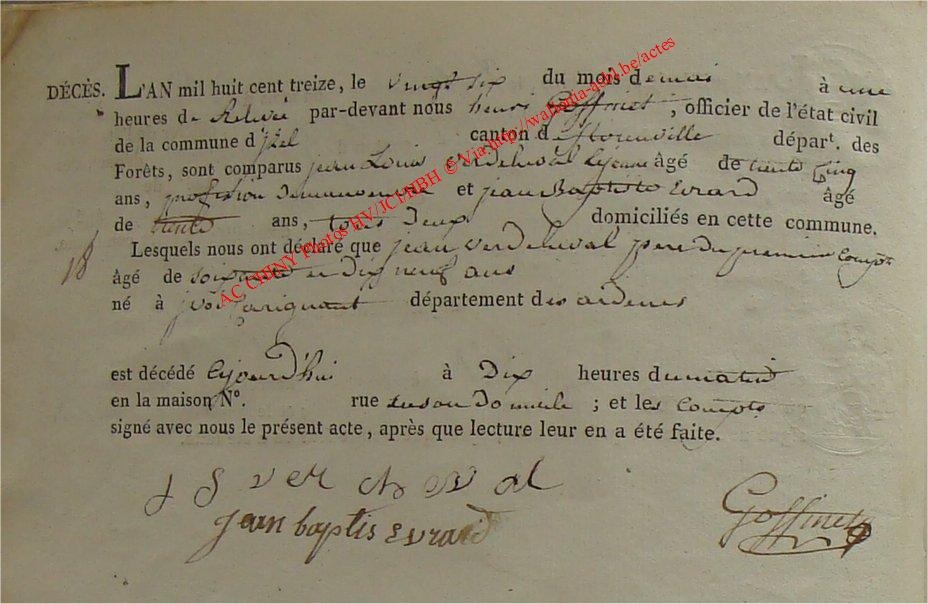 DÉCÈS. L'AN mil huit cent treize, le vingt six du mois de mai à une
heures de Relevé par-devant nous henri Goffinet, officier de l'état civil
de la commune d'jzel canton de florenville départ. des
Forêts, sont comparus jean Louis Verdcheval âgé de trente Cinq
ans, profession de manoeuvre et jean Baptiste Evrard âgé
de trente ans, tous deux domiciliés en cette commune.
Lesquels nous ont déclaré que jean verdcheval pere du premier Compt
18
âgé de soixante et dix neuf ans
né à jvoi Carignant département des ardenes
est décédé cejourd'hui à Dix heures du matin
en la maison N°. rue en son domicile ; et les Compts
signé avec nous le présent acte, après que lecture leur en a été faite.
J S ver cheval
jean baptis Evrard
Goffinet
AC CHINY Photos HV/JCH/HBH © Via http://wallonia-asbl.be/actes